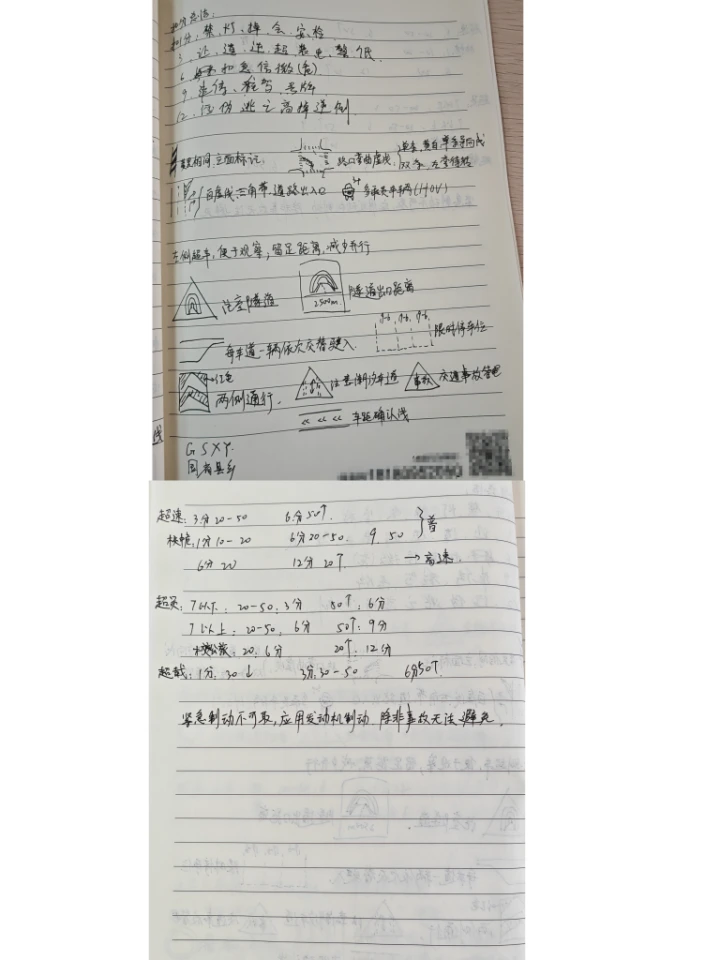 扣分方法:
扣1分, 禁、灯、掉、会、安、检
3、让、道、逆、超、载、电、警、低
6、和急信
9、牌
12、伤逃亡高掉逆倒
立面标记:
三角带、道路出入口
左侧超车, 便于观察, 留足距离, 减少并行
注意隧道
2500m
隧道出口距离
每车道一辆依次交替驶入
限时停车位
红色
两侧通行.
注意潮汐车道
事故
交通事故管理
<< << <<
车距确认线
G S X Y.
国省县乡
超速: 3分 20-50 6分 50↑.
1分 10-20 6分 20-50, 9 50
普
6分 20 12分 20↑.
→高速.
超员: 7以下: 20-50: 3分 50↑: 6分
7以上: 20-50: 6分 50↑: 9分
20: 6分 20↑: 12分
超载: 1分: 30↓ 3分: 30-50 6分50↑
紧急制动不可取, 应用发动机制动. 除非事故无法避免.